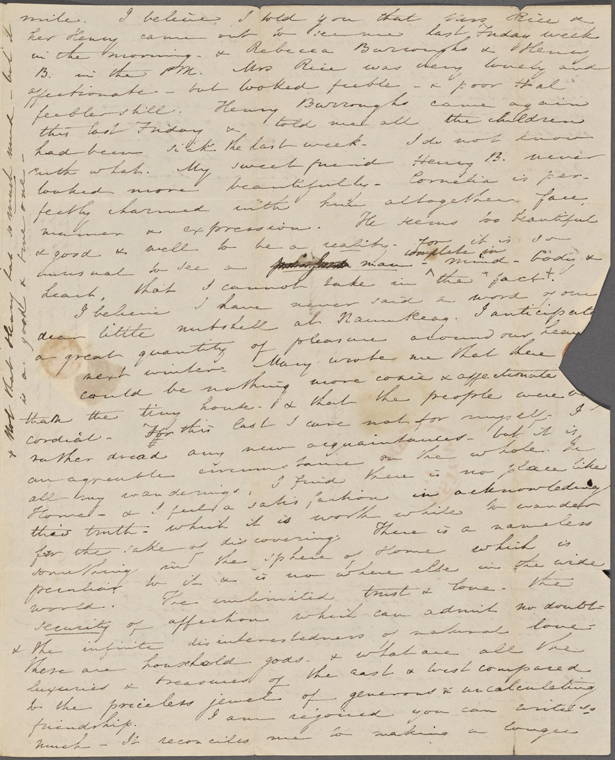 mile. I believe I told you that Mrs Rice &
her Henry came out to see me last Friday week
in the morning - & Rebecca Burroughs & Henry
B. in the P.M. Mrs Rice was very lovely and
affectionate - but looked feeble - & poor Hal
feebler still. Henry Burroughs came again
this last Friday & told me all the children
had been sick the last week. I do not know
with what. My sweet friend Henry B. never
looked more beautifully - Cornelia is per-
fectly charmed with him altogether, face,
manner & expression. He seems too beautiful
& good & well to be a reality. For it is so
unusual to see a man - complete in mind - body &
heart, that I cannot take in the "fact".
I believe I have never said a word of our
dear little nutshell at Naumkeag. I anticipate
a great quantity of pleasure around our hearth
next winter. Mary wrote me that there
could be nothing more cosie & affectionate
than the tiny house - & that the people were
cordial - For this last I care not for myself - I
rather dread any new acquaintances - but it is
an agreeable circumstance on the whole. In
all my wanderings, I find there is no place like
Home - & I feel a satisfaction in acknowledging
this truth - which it is worth while to wander
for the sake of discovering. There is a nameless
something in the sphere of Home which is
peculiar to it & is no where else in the wide
world. The unlimited trust & love - the
security of affection which can admit no doubt -
& the infinite disinterestedness of natural love -
these are household gods. & what are all the
luxuries & treasures of the east & west compared
to the priceless jewel of generous & uncalculating
friendship. I am rejoiced you can write so
much - It reconciles me to making a longer
& Not that Henry has so much mind - but it
is a good & true one -